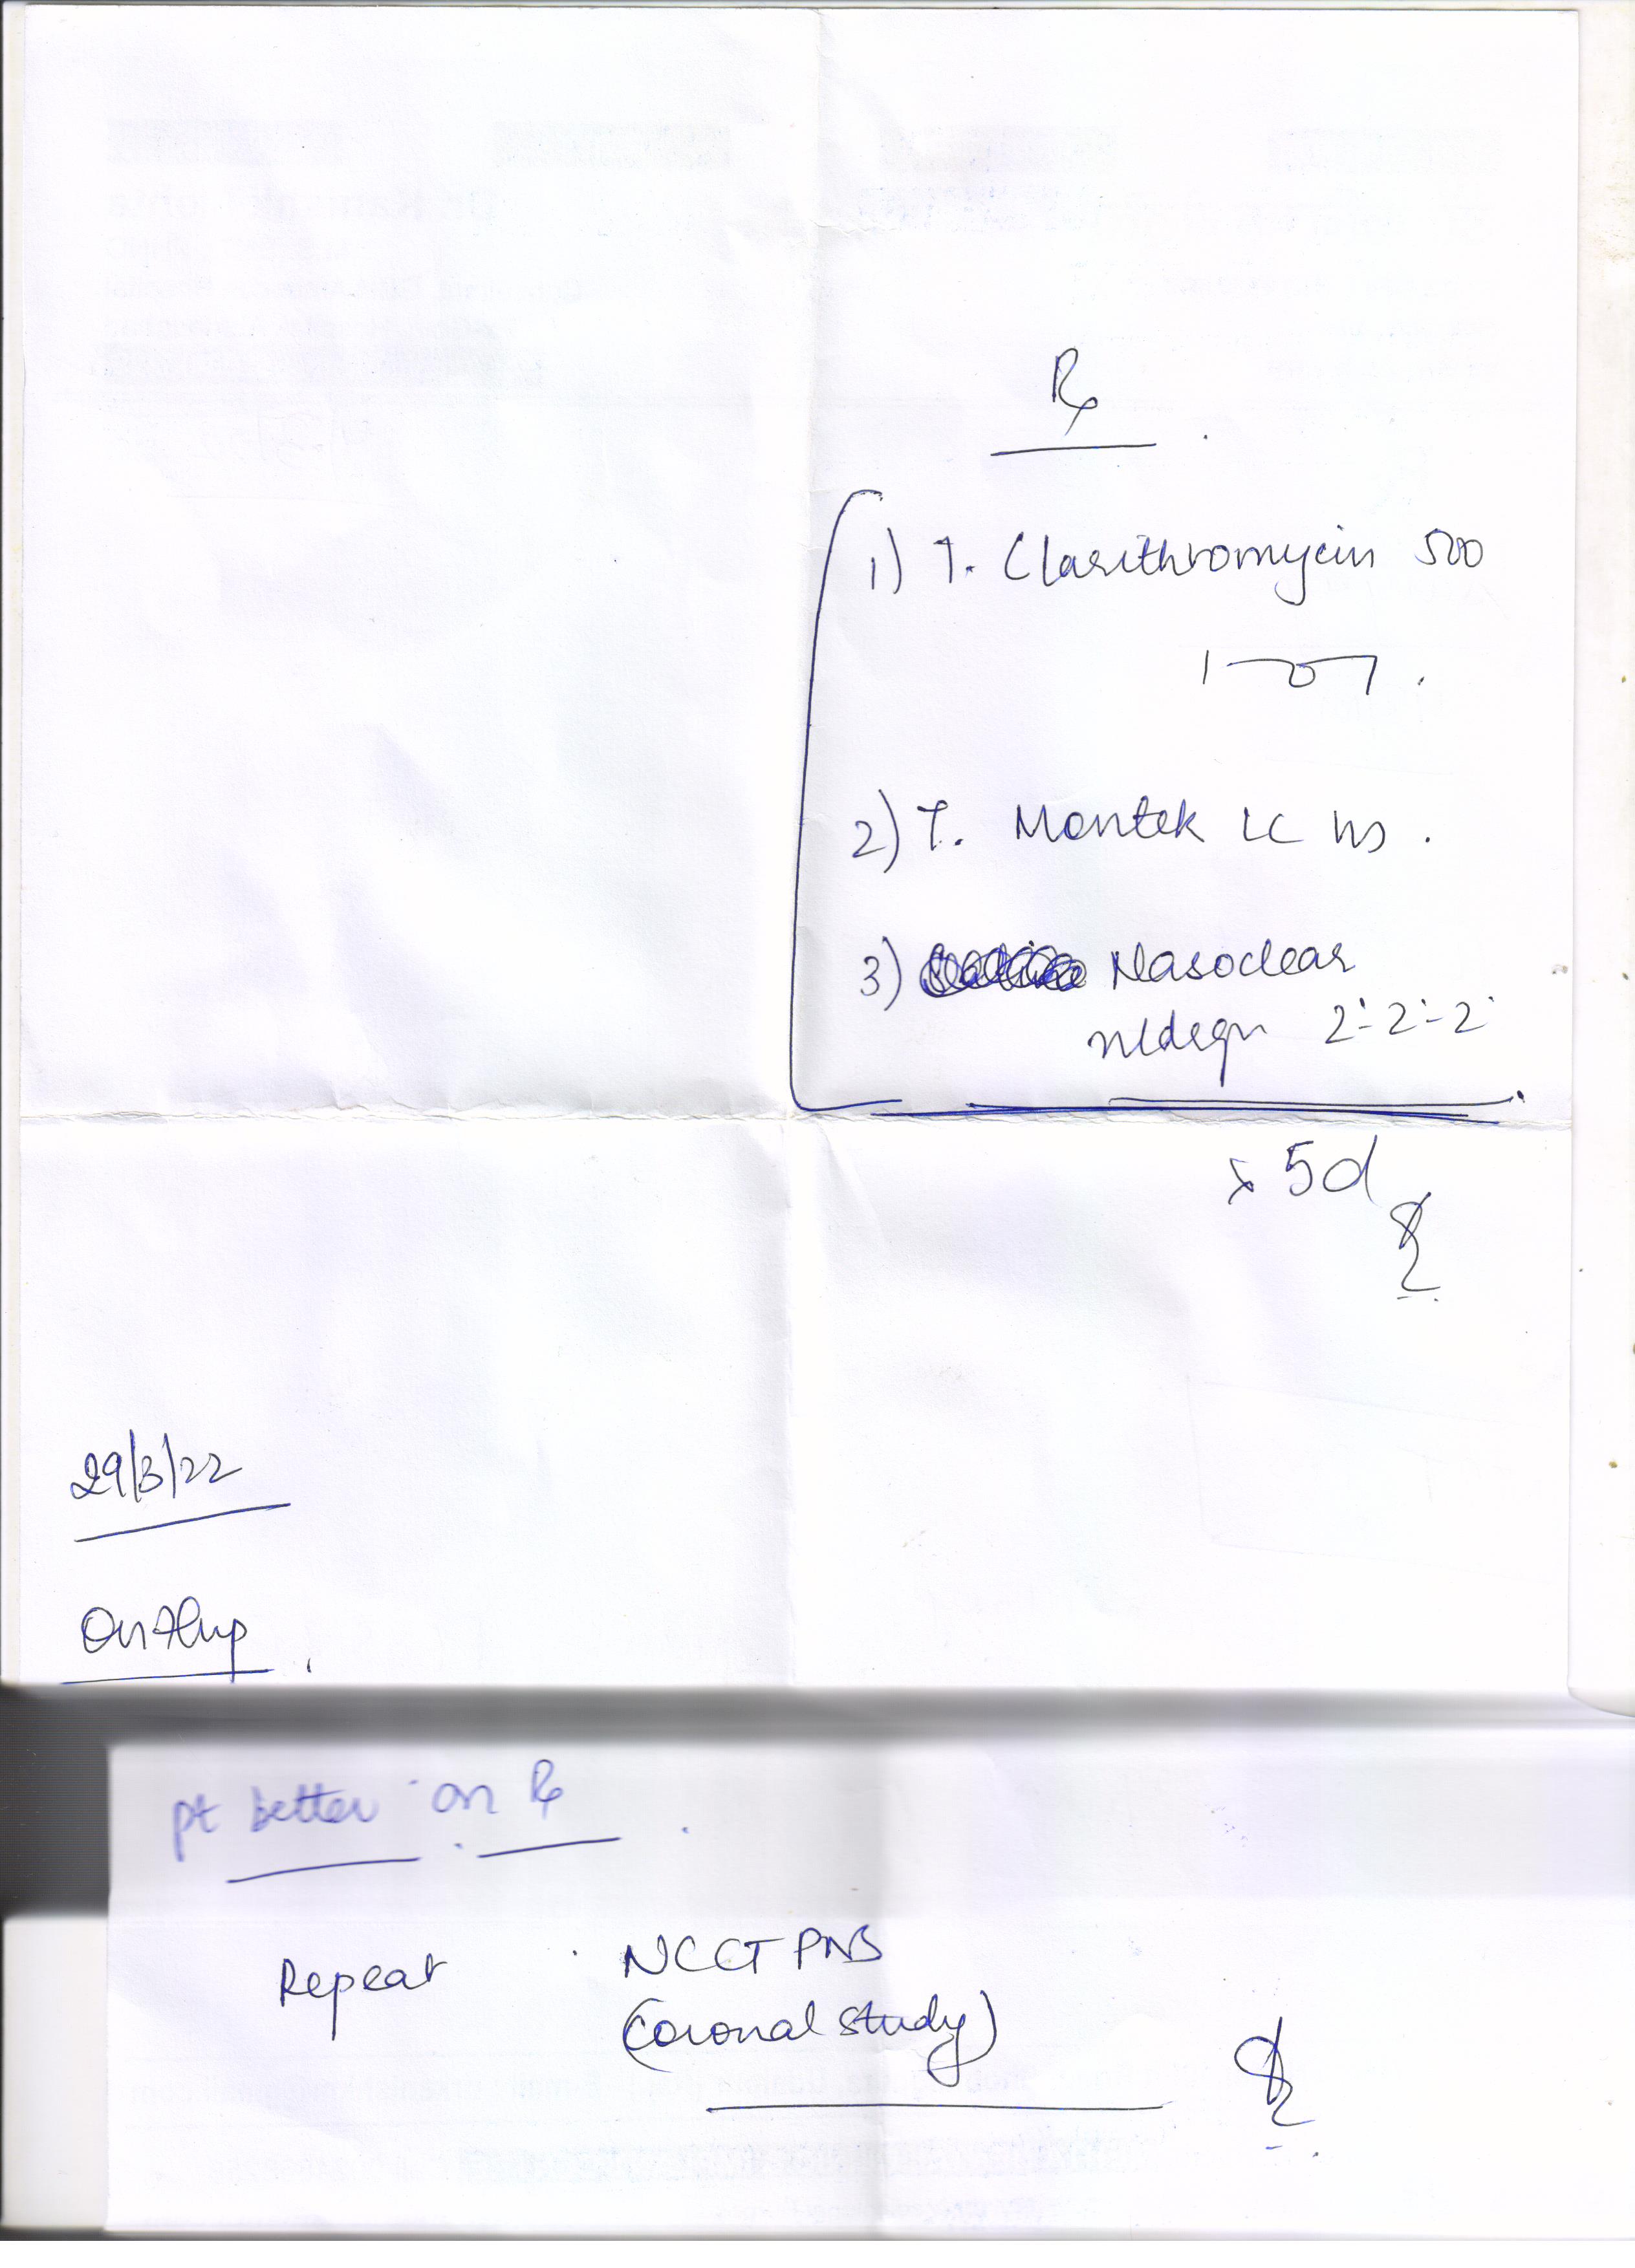 Rx
1) T. Clarithromycin 500
1-0-1.
2) T. Montek LC HS.
3) Nasoclear
2-2-2
x 5d
29/3/22
pt better on Rx
Repeat NCCT PNS
(coronal study)